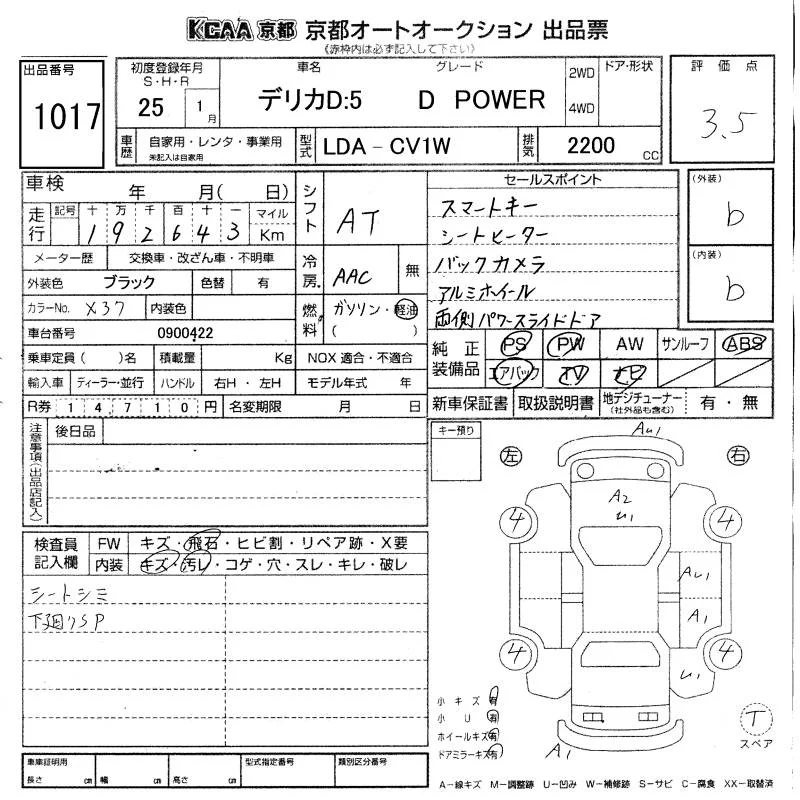 KCAA 京都 京都オートオークション 出品票
《赤枠内は必ず記入して下さい》
出品番号
1017
初度登録年月
S・H・R
25 1月
車名
デリカD:5
グレード
D POWER
2WD
4WD
ドア・形状
評価点
3.5
車歴
自家用・レンタ・事業用
未記入は自家用
型式
LDA－CV1W
排気
2200 CC
車検 年 月( 日)
走行
記号 十 万 千 百 十 一 マイル
1 9 2 6 4 3 Km
メーター歴 交換車・改ざん車・不明車
外装色 ブラック 色替 有
カラーNo. X37 内装色
車台番号 0900422
乗車定員( )名 積載量 Kg NOX 適合・不適合
輸入車 ディーラー・並行 ハンドル 右H・左H モデル年式 年
R券 14,710円 名変期限 月 日
シフト
AT
冷房
AAC 無
燃料
ガソリン・軽油
( )
セールスポイント
スマートキー
シートヒーター
バックカメラ
アルミホイール
両側パワースライドドア
(外装)
b
(内装)
b
純正装備品
PS PW AW サンルーフ ABS
エアバック TV ナビ
新車保証書 取扱説明書 地デジチューナー(社外品も含む) 有・無
注意事項(出品店記入)
後日品
キー預り
検査員記入欄
FW キズ・飛石・ヒビ割・リペア跡・X要
内装 キズ・汚レ・コゲ・穴・スレ・キレ・破レ
シートシミ
下廻りSP
左
右
AU1
A2
U1
4
4
AU1
A1
4
4
U1
A1
小キズ 有
小U 有
ホイールキズ 有
ドアミラーキズ 有
T
スペア
車庫証明用
長さ cm 幅 cm 高さ cm
型式指定番号
類別区分番号
A－線キズ M－調整跡 U－凹み W－補修跡 S－サビ C－腐食 XX－取替済